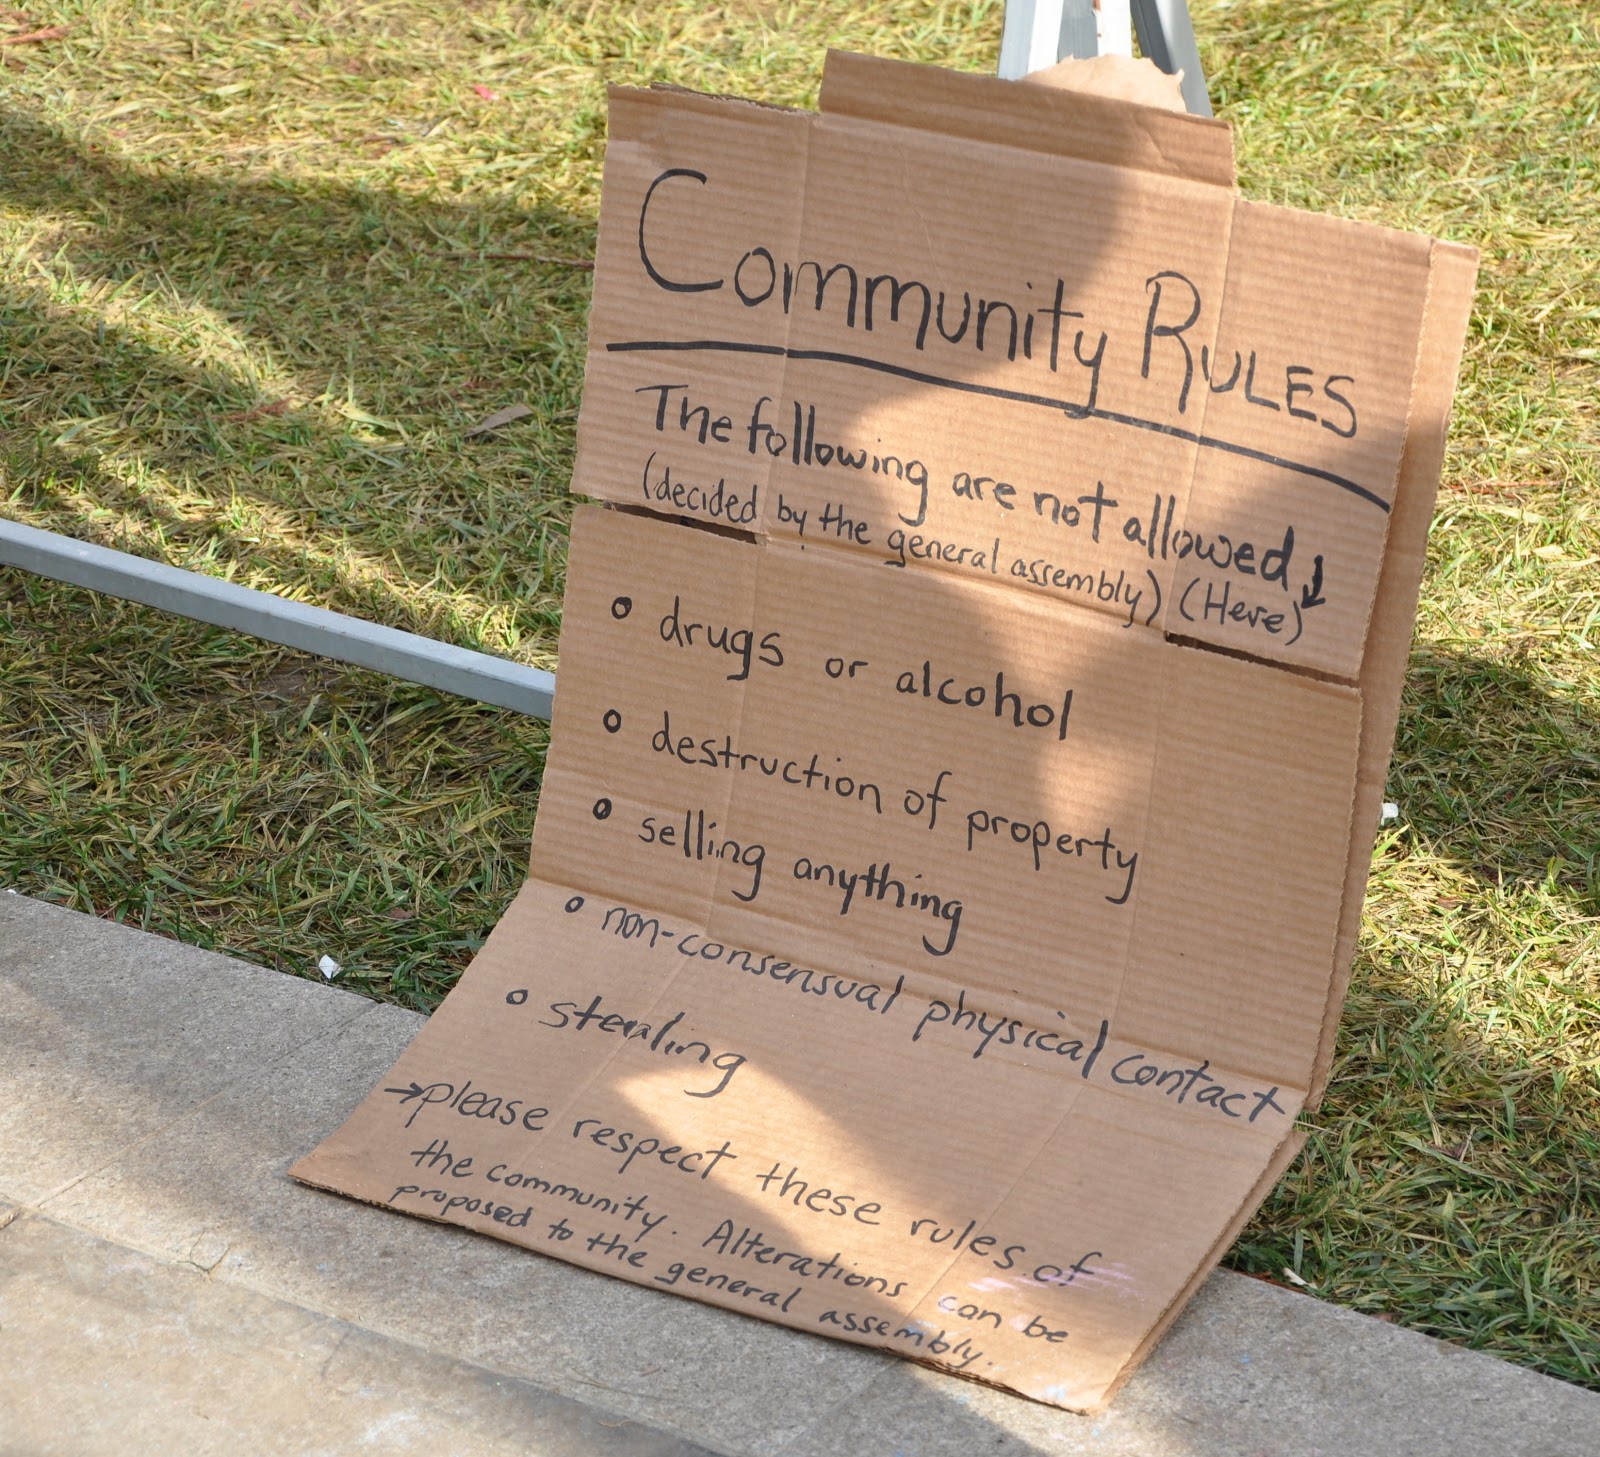 Community RULES
The following are not allowed ↓
(decided by the general assembly) (Here)
o drugs or alcohol
o destruction of property
o selling anything
o non-consensual physical contact
o stealing
→please respect these rules of
the community. Alterations can be
proposed to the general assembly.